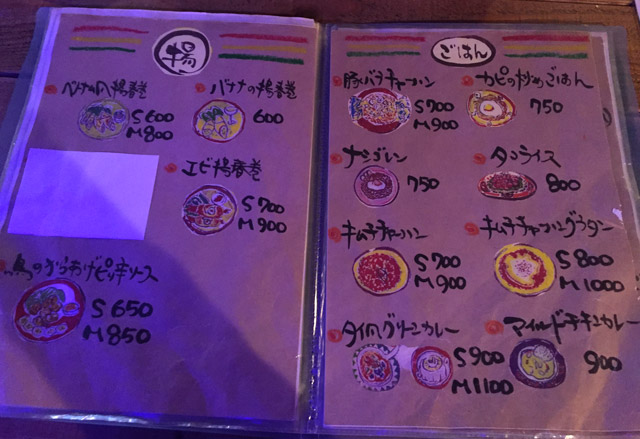 揚
ベトナム風揚春巻
S 600
M 800
バナナの揚春巻
600
エビ揚春巻
S 700
M 900
鳥のからあげピリ辛ソース
S 650
M 850
ごはん
豚バラチャーハン
S 700
M 900
カピの炒めごはん
750
ナシゴレン
750
タコライス
800
キムチチャーハン
S 700
M 900
キムチチャーハングラタン
S 800
M 1000
タイ風グリーンカレー
S 900
M 1100
マイルドチキンカレー
900